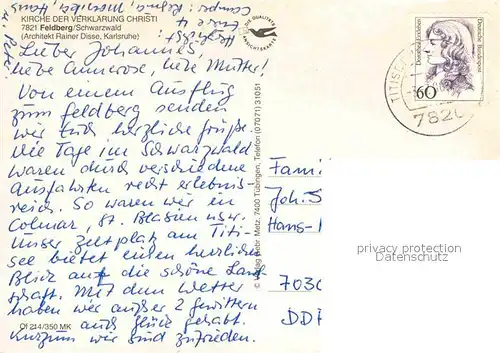 KIRCHE DER VERKLÄRUNG CHRISTI
7821 Feldberg/Schwarzwald
(Architekt Rainer Disse, Karlsruhe)
Lieber Johannes
liebe Annerose, liebe Mutter!
Von einem Ausflug
zum Feldberg senden
wir Euch herzliche Grüße.
Die Tage im Schwarzwald
waren durch verschiedene
Ausfahrten recht erlebnis-
reich. So waren wir in
Colmar, St. Blasien usw.
Unser Zeltplatz am Titi-
see bietet einen herrlichen
Blick auf die schöne Land
schaft. Mit dem Wetter
haben wir außer 2 Gewittern
auch Glück gehabt.
Kurzum wir sind zufrieden.
Herzlichst
Eure
u. Peter
Hans
Ol 214/350 MK
© Verlag Gebr. Metz, 7400 Tübingen, Telefon (07071) 31051
DIE QUALITÄTS
ANSICHTSKARTE
Deutsche Bundespost
60
TITISEE
7820
Fami
Joh. S
Hans-
703
DD
privacy protection
Datenschutz